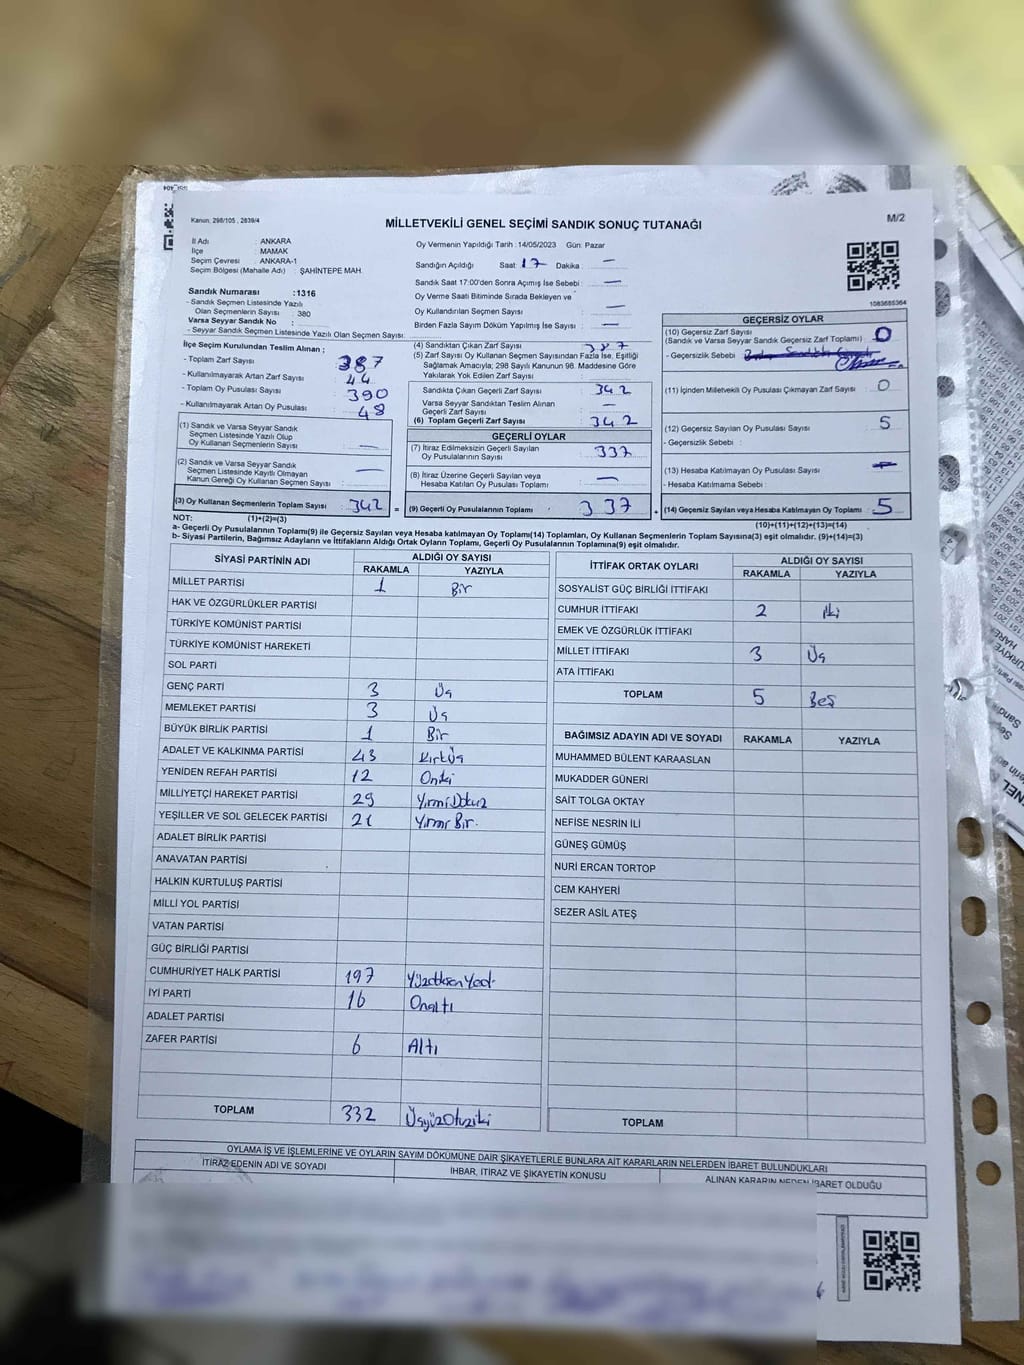 Kanun, 298/105 , 2839/4
MİLLETVEKİLİ GENEL SEÇİMİ SANDIK SONUÇ TUTANAĞI
M/2
İl Adı : ANKARA
İlçe : MAMAK
Seçim Çevresi : ANKARA-1
Seçim Bölgesi (Mahalle Adı) : ŞAHİNTEPE MAH.
Oy Vermenin Yapıldığı Tarih : 14/05/2023 Gün: Pazar
Sandığın Açıldığı Saat: 17 Dakika : —
Sandık Saat 17:00'den Sonra Açımış İse Sebebi : —
Oy Verme Saati Bitiminde Sırada Bekleyen ve
Oy Kullandırılan Seçmen Sayısı : —
Birden Fazla Sayım Döküm Yapılmış İse Sayısı : —
1083685364
Sandık Numarası :1316
- Sandık Seçmen Listesinde Yazılı
Olan Seçmenlerin Sayısı : 380
Varsa Seyyar Sandık No :
- Seyyar Sandık Seçmen Listesinde Yazılı Olan Seçmen Sayısı:
İlçe Seçim Kurulundan Teslim Alınan ;
- Toplam Zarf Sayısı : 387
- Kullanılmayarak Artan Zarf Sayısı : 44
- Toplam Oy Pusulası Sayısı : 390
- Kullanılmayarak Artan Oy Pusulası : 48
(1) Sandık ve Varsa Seyyar Sandık
Seçmen Listesinde Yazılı Olup
Oy Kullanan Seçmenlerin Sayısı : —
(2) Sandık ve Varsa Seyyar Sandık
Seçmen Listesinde Kayıtlı Olmayan
Kanun Gereği Oy Kullanan Seçmen Sayısı : —
(3) Oy Kullanan Seçmenlerin Toplam Sayısı : 342
(4) Sandıktan Çıkan Zarf Sayısı :
(5) Zarf Sayısı Oy Kullanan Seçmen Sayısından Fazla İse, Eşitliği
Sağlamak Amacıyla; 298 Sayılı Kanunun 98. Maddesine Göre
Yakılarak Yok Edilen Zarf Sayısı :
Sandıkta Çıkan Geçerli Zarf Sayısı : 342
Varsa Seyyar Sandıktan Teslim Alınan
Geçerli Zarf Sayısı : —
(6) Toplam Geçerli Zarf Sayısı : 342
GEÇERLİ OYLAR
(7) İtiraz Edilmeksizin Geçerli Sayılan
Oy Pusulalarının Sayısı : 337
(8) İtiraz Üzerine Geçerli Sayılan veya
Hesaba Katılan Oy Pusulası Toplamı : —
= (9) Geçerli Oy Pusulalarının Toplamı : 337
GEÇERSİZ OYLAR
(10) Geçersiz Zarf Sayısı
(Sandık ve Varsa Seyyar Sandık Geçersiz Zarf Toplamı) : 0
- Geçersizlik Sebebi :
(11) İçinden Milletvekili Oy Pusulası Çıkmayan Zarf Sayısı : 0
(12) Geçersiz Sayılan Oy Pusulası Sayısı : 5
- Geçersizlik Sebebi :
(13) Hesaba Katılmayan Oy Pusulası Sayısı :
- Hesaba Katılmama Sebebi :
+ (14) Geçersiz Sayılan veya Hesaba Katılmayan Oy Toplamı : 5
NOT: (1)+(2)=(3)
(10)+(11)+(12)+(13)=(14)
a- Geçerli Oy Pusulalarının Toplamı(9) ile Geçersiz Sayılan veya Hesaba katılmayan Oy Toplamı(14) Toplamları, Oy Kullanan Seçmenlerin Toplam Sayısına(3) eşit olmalıdır. (9)+(14)=(3)
b- Siyasi Partilerin, Bağımsız Adayların ve İttifakların Aldığı Ortak Oyların Toplamı, Geçerli Oy Pusulalarının Toplamına(9) eşit olmalıdır.
SİYASİ PARTİNİN ADI ALDIĞI OY SAYISI
RAKAMLA YAZIYLA
MİLLET PARTİSİ 1 Bir
HAK VE ÖZGÜRLÜKLER PARTİSİ
TÜRKİYE KOMÜNİST PARTİSİ
TÜRKİYE KOMÜNİST HAREKETİ
SOL PARTİ
GENÇ PARTİ 3 Üç
MEMLEKET PARTİSİ 3 Üç
BÜYÜK BİRLİK PARTİSİ 1 Bir
ADALET VE KALKINMA PARTİSİ 43 KırkÜç
YENİDEN REFAH PARTİSİ 12 Oniki
MİLLİYETÇİ HAREKET PARTİSİ 29 YirmiDokuz
YEŞİLLER VE SOL GELECEK PARTİSİ 21 Yirmi Bir.
ADALET BİRLİK PARTİSİ
ANAVATAN PARTİSİ
HALKIN KURTULUŞ PARTİSİ
MİLLİ YOL PARTİSİ
VATAN PARTİSİ
GÜÇ BİRLİĞİ PARTİSİ
CUMHURİYET HALK PARTİSİ 197 YüzdoksanYedi
İYİ PARTİ 16 Onaltı
ADALET PARTİSİ
ZAFER PARTİSİ 6 Altı
TOPLAM 332 ÜçyüzOtuziki
İTTİFAK ORTAK OYLARI ALDIĞI OY SAYISI
RAKAMLA YAZIYLA
SOSYALİST GÜÇ BİRLİĞİ İTTİFAKI
CUMHUR İTTİFAKI 2 iki
EMEK VE ÖZGÜRLÜK İTTİFAKI
MİLLET İTTİFAKI 3 Üç
ATA İTTİFAKI
TOPLAM 5 Beş
BAĞIMSIZ ADAYIN ADI VE SOYADI RAKAMLA YAZIYLA
MUHAMMED BÜLENT KARAASLAN
MUKADDER GÜNERİ
SAİT TOLGA OKTAY
NEFİSE NESRİN İLİ
GÜNEŞ GÜMÜŞ
NURİ ERCAN TORTOP
CEM KAHYERİ
SEZER ASİL ATEŞ
TOPLAM
OYLAMA İŞ VE İŞLEMLERİNE VE OYLARIN SAYIM DÖKÜMÜNE DAİR ŞİKAYETLERLE BUNLARA AİT KARARLARIN NELERDEN İBARET BULUNDUKLARI
İTİRAZ EDENİN ADI VE SOYADI
İHBAR, İTİRAZ VE ŞİKAYETİN KONUSU
ALINAN KARARIN NEDEN İBARET OLDUĞU